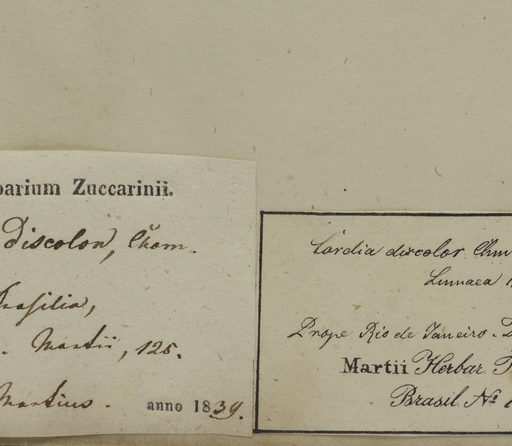 barium Zuccarinii.
Discolor, Cham.
Brasilia,
. Martii, 125.
Martius. anno 1839.
Cordia discolor Cham
Linnaea
Prope Rio de Janeiro.
Martii Herbar.
Brasil. No.